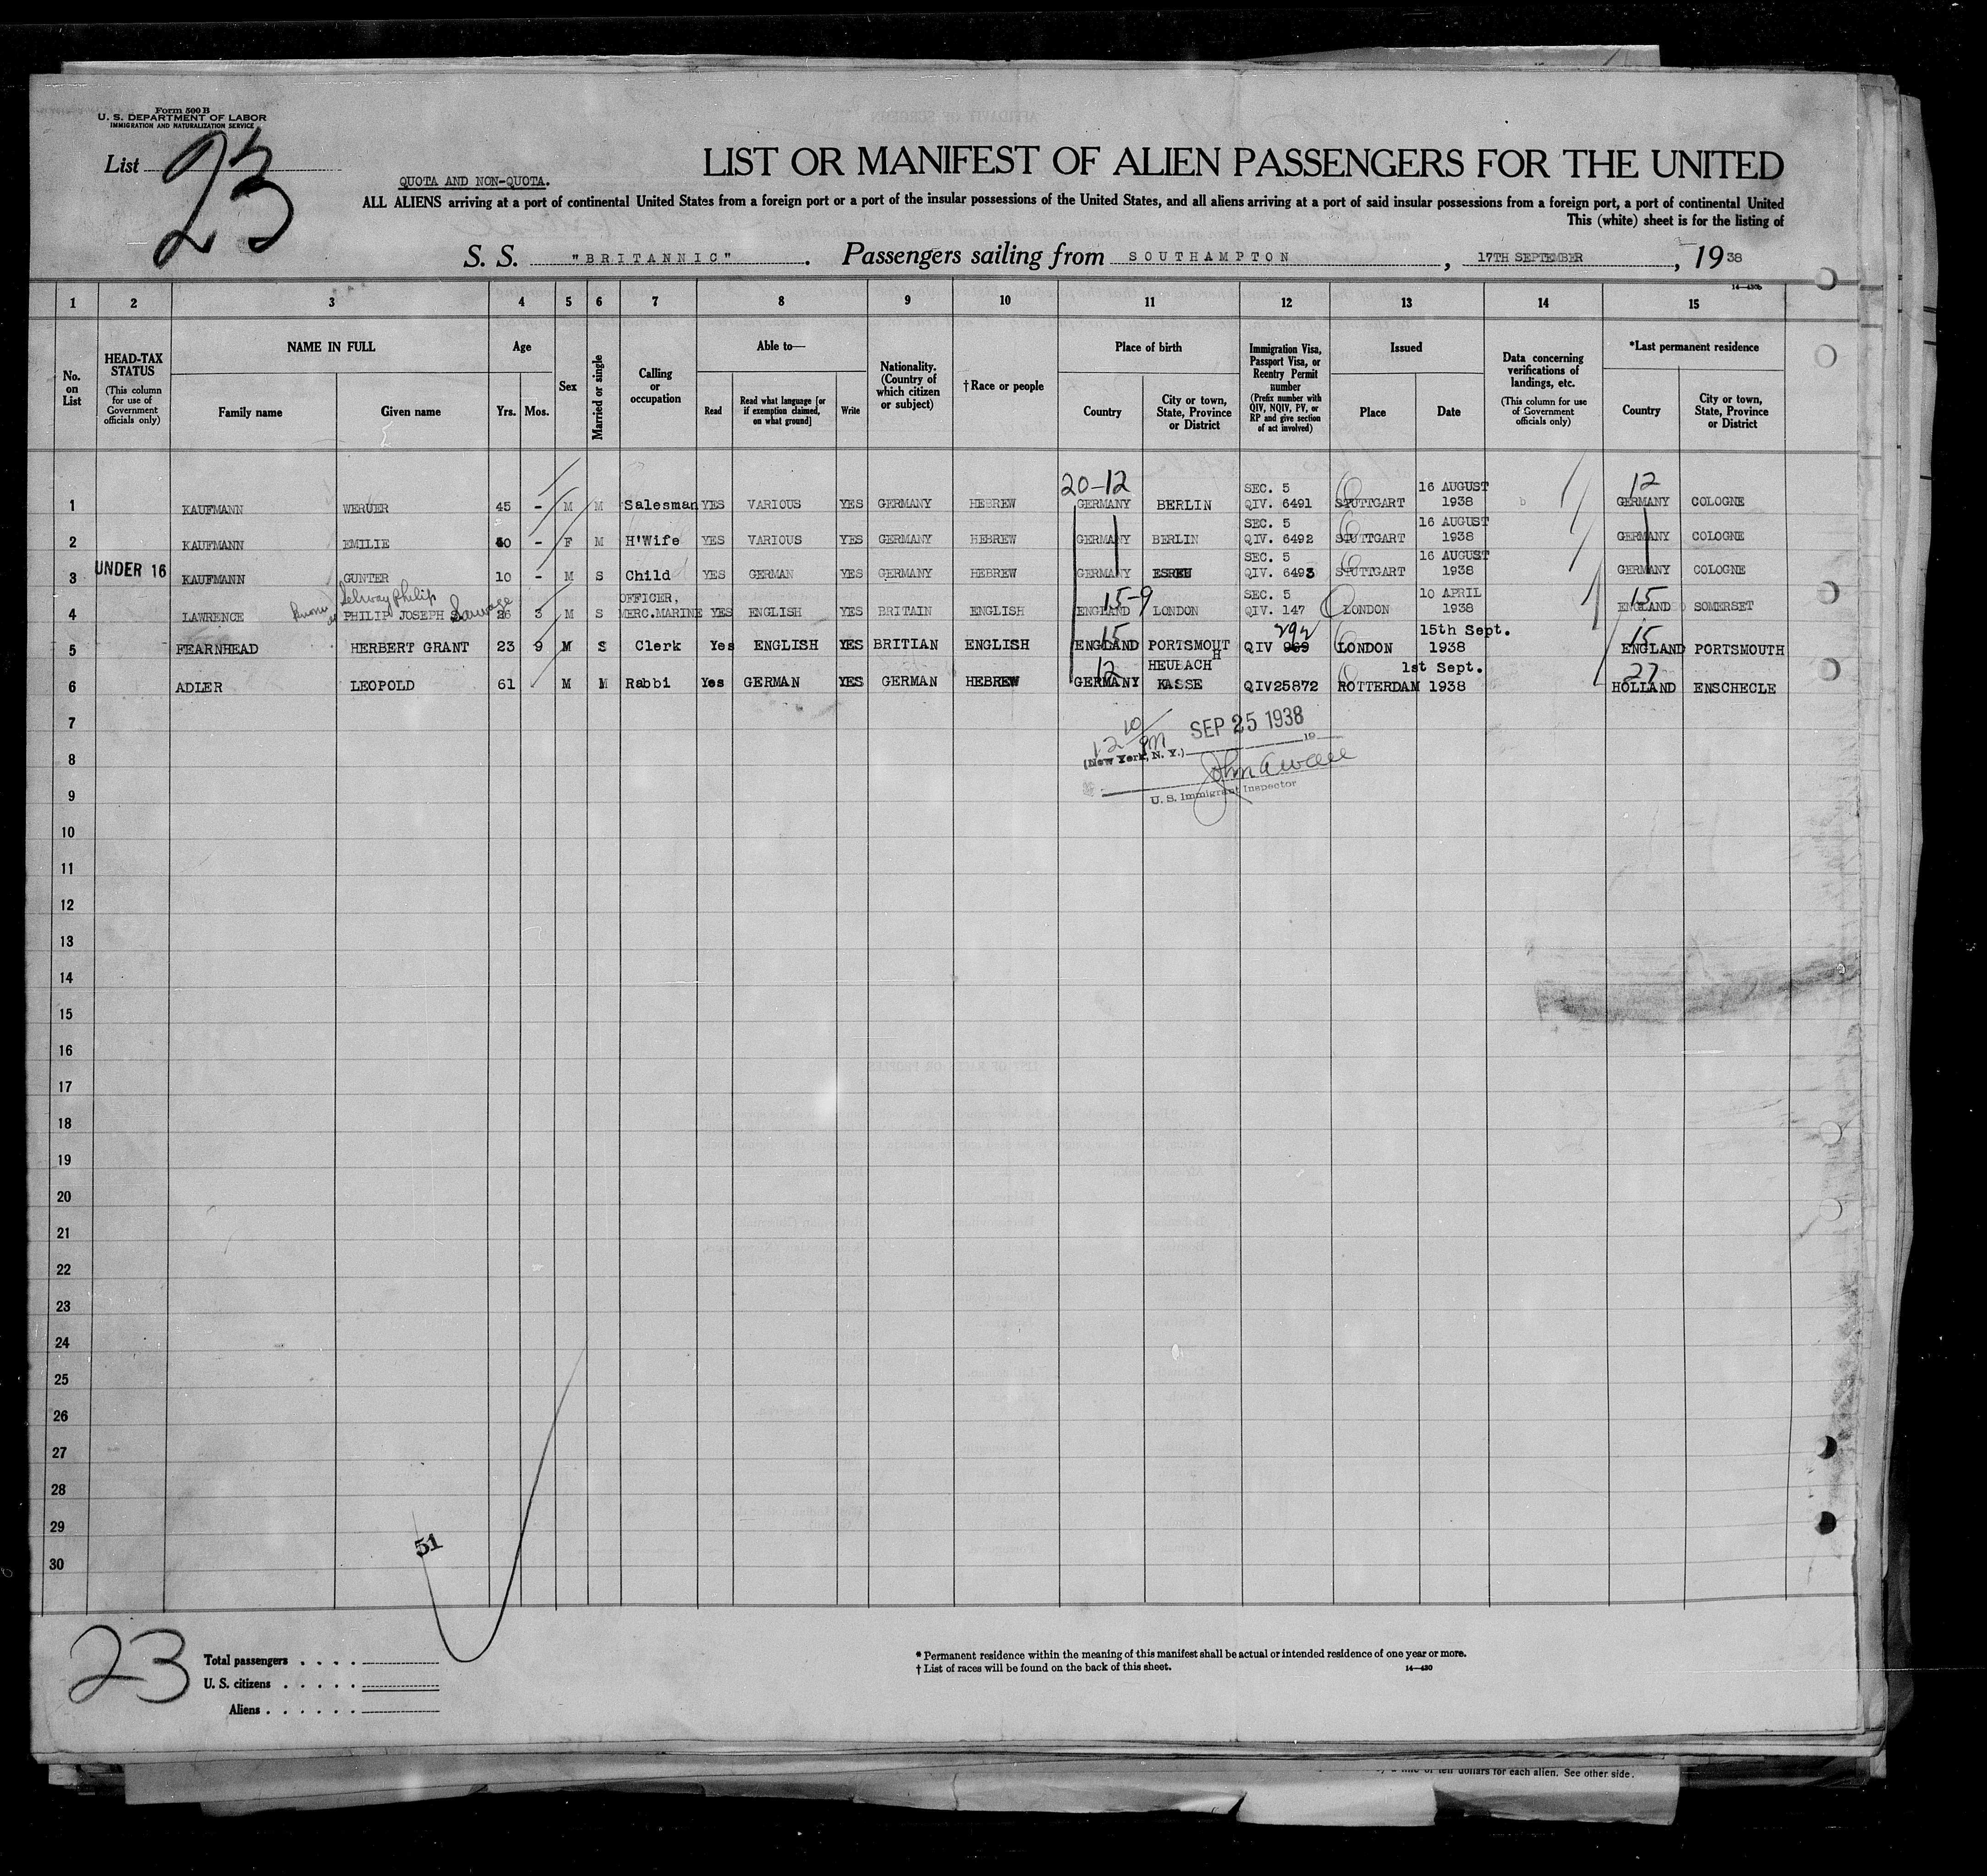 Form 500 B
U. S. DEPARTMENT OF LABOR
IMMIGRATION AND NATURALIZATION SERVICE
List 23
LIST OR MANIFEST OF ALIEN PASSENGERS FOR THE UNITED
QUOTA AND NON-QUOTA.
ALL ALIENS arriving at a port of continental United States from a foreign port or a port of the insular possessions of the United States, and all aliens arriving at a port of said insular possessions from a foreign port, a port of continental United
This (white) sheet is for the listing of
S. S. "BRITANNIC". Passengers sailing from SOUTHAMPTON, 17TH SEPTEMBER, 1938
14—430b
1 2 3 4 5 6 7 8 9 10 11 12 13 14 15
No. on List
HEAD-TAX STATUS (This column for use of Government officials only)
NAME IN FULL
Family name Given name
Age
Yrs. Mos.
Sex
Married or single
Calling or occupation
Able to—
Read Read what language [or if exemption claimed, on what ground] Write
Nationality. (Country of which citizen or subject)
†Race or people
Place of birth
Country City or town, State, Province or District
Immigration Visa, Passport Visa, or Reentry Permit number (Prefix number with QIV, NQIV, PV, or RP and give section of act involved)
Issued
Place Date
Data concerning verifications of landings, etc. (This column for use of Government officials only)
*Last permanent residence
Country City or town, State, Province or District
20-12 SEC. 5 16 AUGUST 12
1 KAUFMANN WERUER 45 - M M Salesman YES VARIOUS YES GERMANY HEBREW GERMANY BERLIN QIV. 6491 STUTTGART 1938 GERMANY COLOGNE
SEC. 5 16 AUGUST
2 KAUFMANN EMILIE 40 - F M H'Wife YES VARIOUS YES GERMANY HEBREW GERMANY BERLIN QIV. 6492 STUTTGART 1938 GERMANY COLOGNE
SEC. 5 16 AUGUST
3 UNDER 16 KAUFMANN GUNTER 10 - M S Child YES GERMAN YES GERMANY HEBREW GERMANY QIV. 6493 STUTTGART 1938 GERMANY COLOGNE
Selway Philip OFFICER, 15-9 SEC. 5 10 APRIL 15
4 LAWRENCE PHILIP JOSEPH 26 3 M S MERC.MARINE YES ENGLISH YES BRITAIN ENGLISH ENGLAND LONDON QIV. 147 LONDON 1938 ENGLAND SOMERSET
15 292 15th Sept. 15
5 FEARNHEAD HERBERT GRANT 23 9 M S Clerk Yes ENGLISH YES BRITIAN ENGLISH ENGLAND PORTSMOUTH QIV 969 LONDON 1938 ENGLAND PORTSMOUTH
12 HEUBACH 1st Sept. 27
6 ADLER LEOPOLD 61 M M Rabbi Yes GERMAN YES GERMAN HEBREW GERMANY KASSE QIV25872 ROTTERDAM 1938 HOLLAND ENSCHECLE
7
12 10/PM SEP 25 1938
8
(New York, N. Y.) 19
9
U. S. Immigrant Inspector
10
11
12
13
14
15
16
17
18
19
20
21
22
23
24
25
26
27
28
29
51
30
23
Total passengers . . . .
U. S. citizens . . . . .
Aliens . . . . . .
* Permanent residence within the meaning of this manifest shall be actual or intended residence of one year or more.
† List of races will be found on the back of this sheet.
14—430
of ten dollars for each alien. See other side.